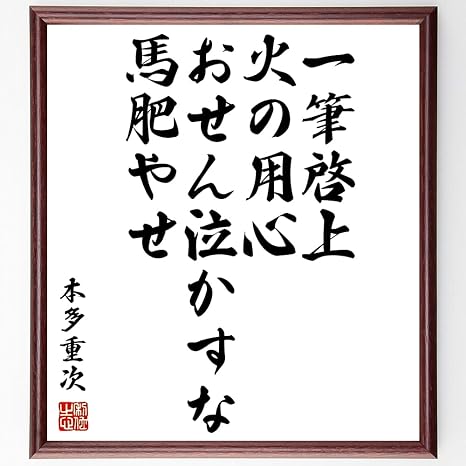 一筆啓上
火の用心
おせん泣かすな
馬肥やせ
本多重次